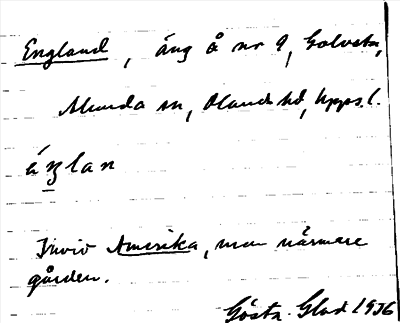 England, äng å nr 9, Golvsta,
Alunda sn, Olands hd, Upps. l.
Invid Amerika, men närmare
gården.
Gösta Glad 1936